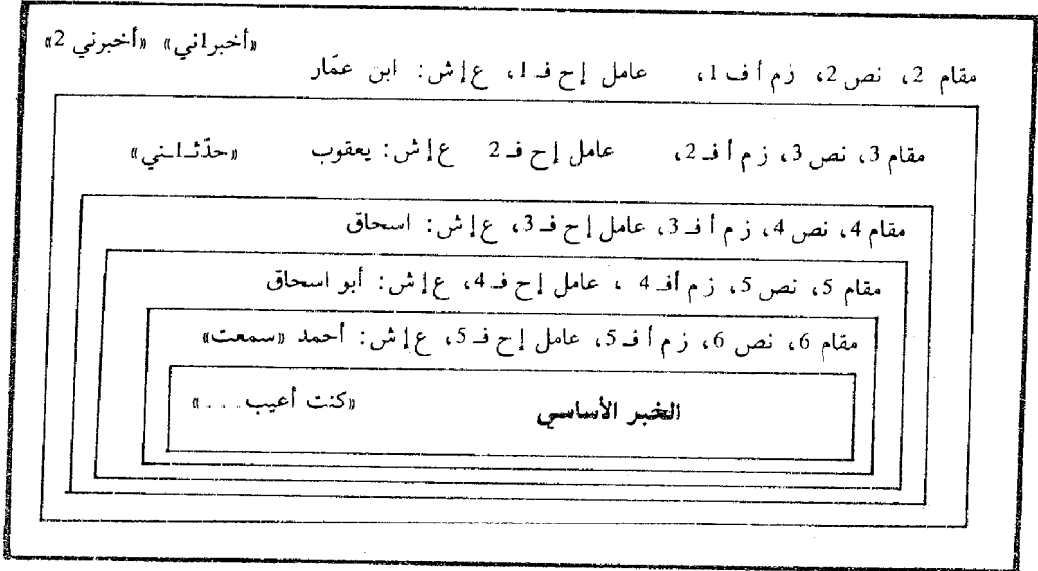 «أخبراني» «أخبرني 2»
مقام 2، نص 2، زم أ ف 1، عامل إ ح فـ 1، ع إ ش: ابن عمّار
مقام 3، نص 3، زم أ فـ 2، عامل إ ح فـ 2 ع إ ش: يعقوب «حدّثـلـني»
مقام 4، نص 4، زم أ فـ 3، عامل إ ح فـ 3، ع إ ش: اسحاق
مقام 5، نص 5، زم أفـ 4 ، عامل إ ح فـ 4، ع إ ش: أبو اسحاق
مقام 6، نص 6، زم أ فـ 5، عامل إ ح فـ 5، ع إ ش: أحمد «سمعت»
الخبر الأساسي «كنت أعيب...»